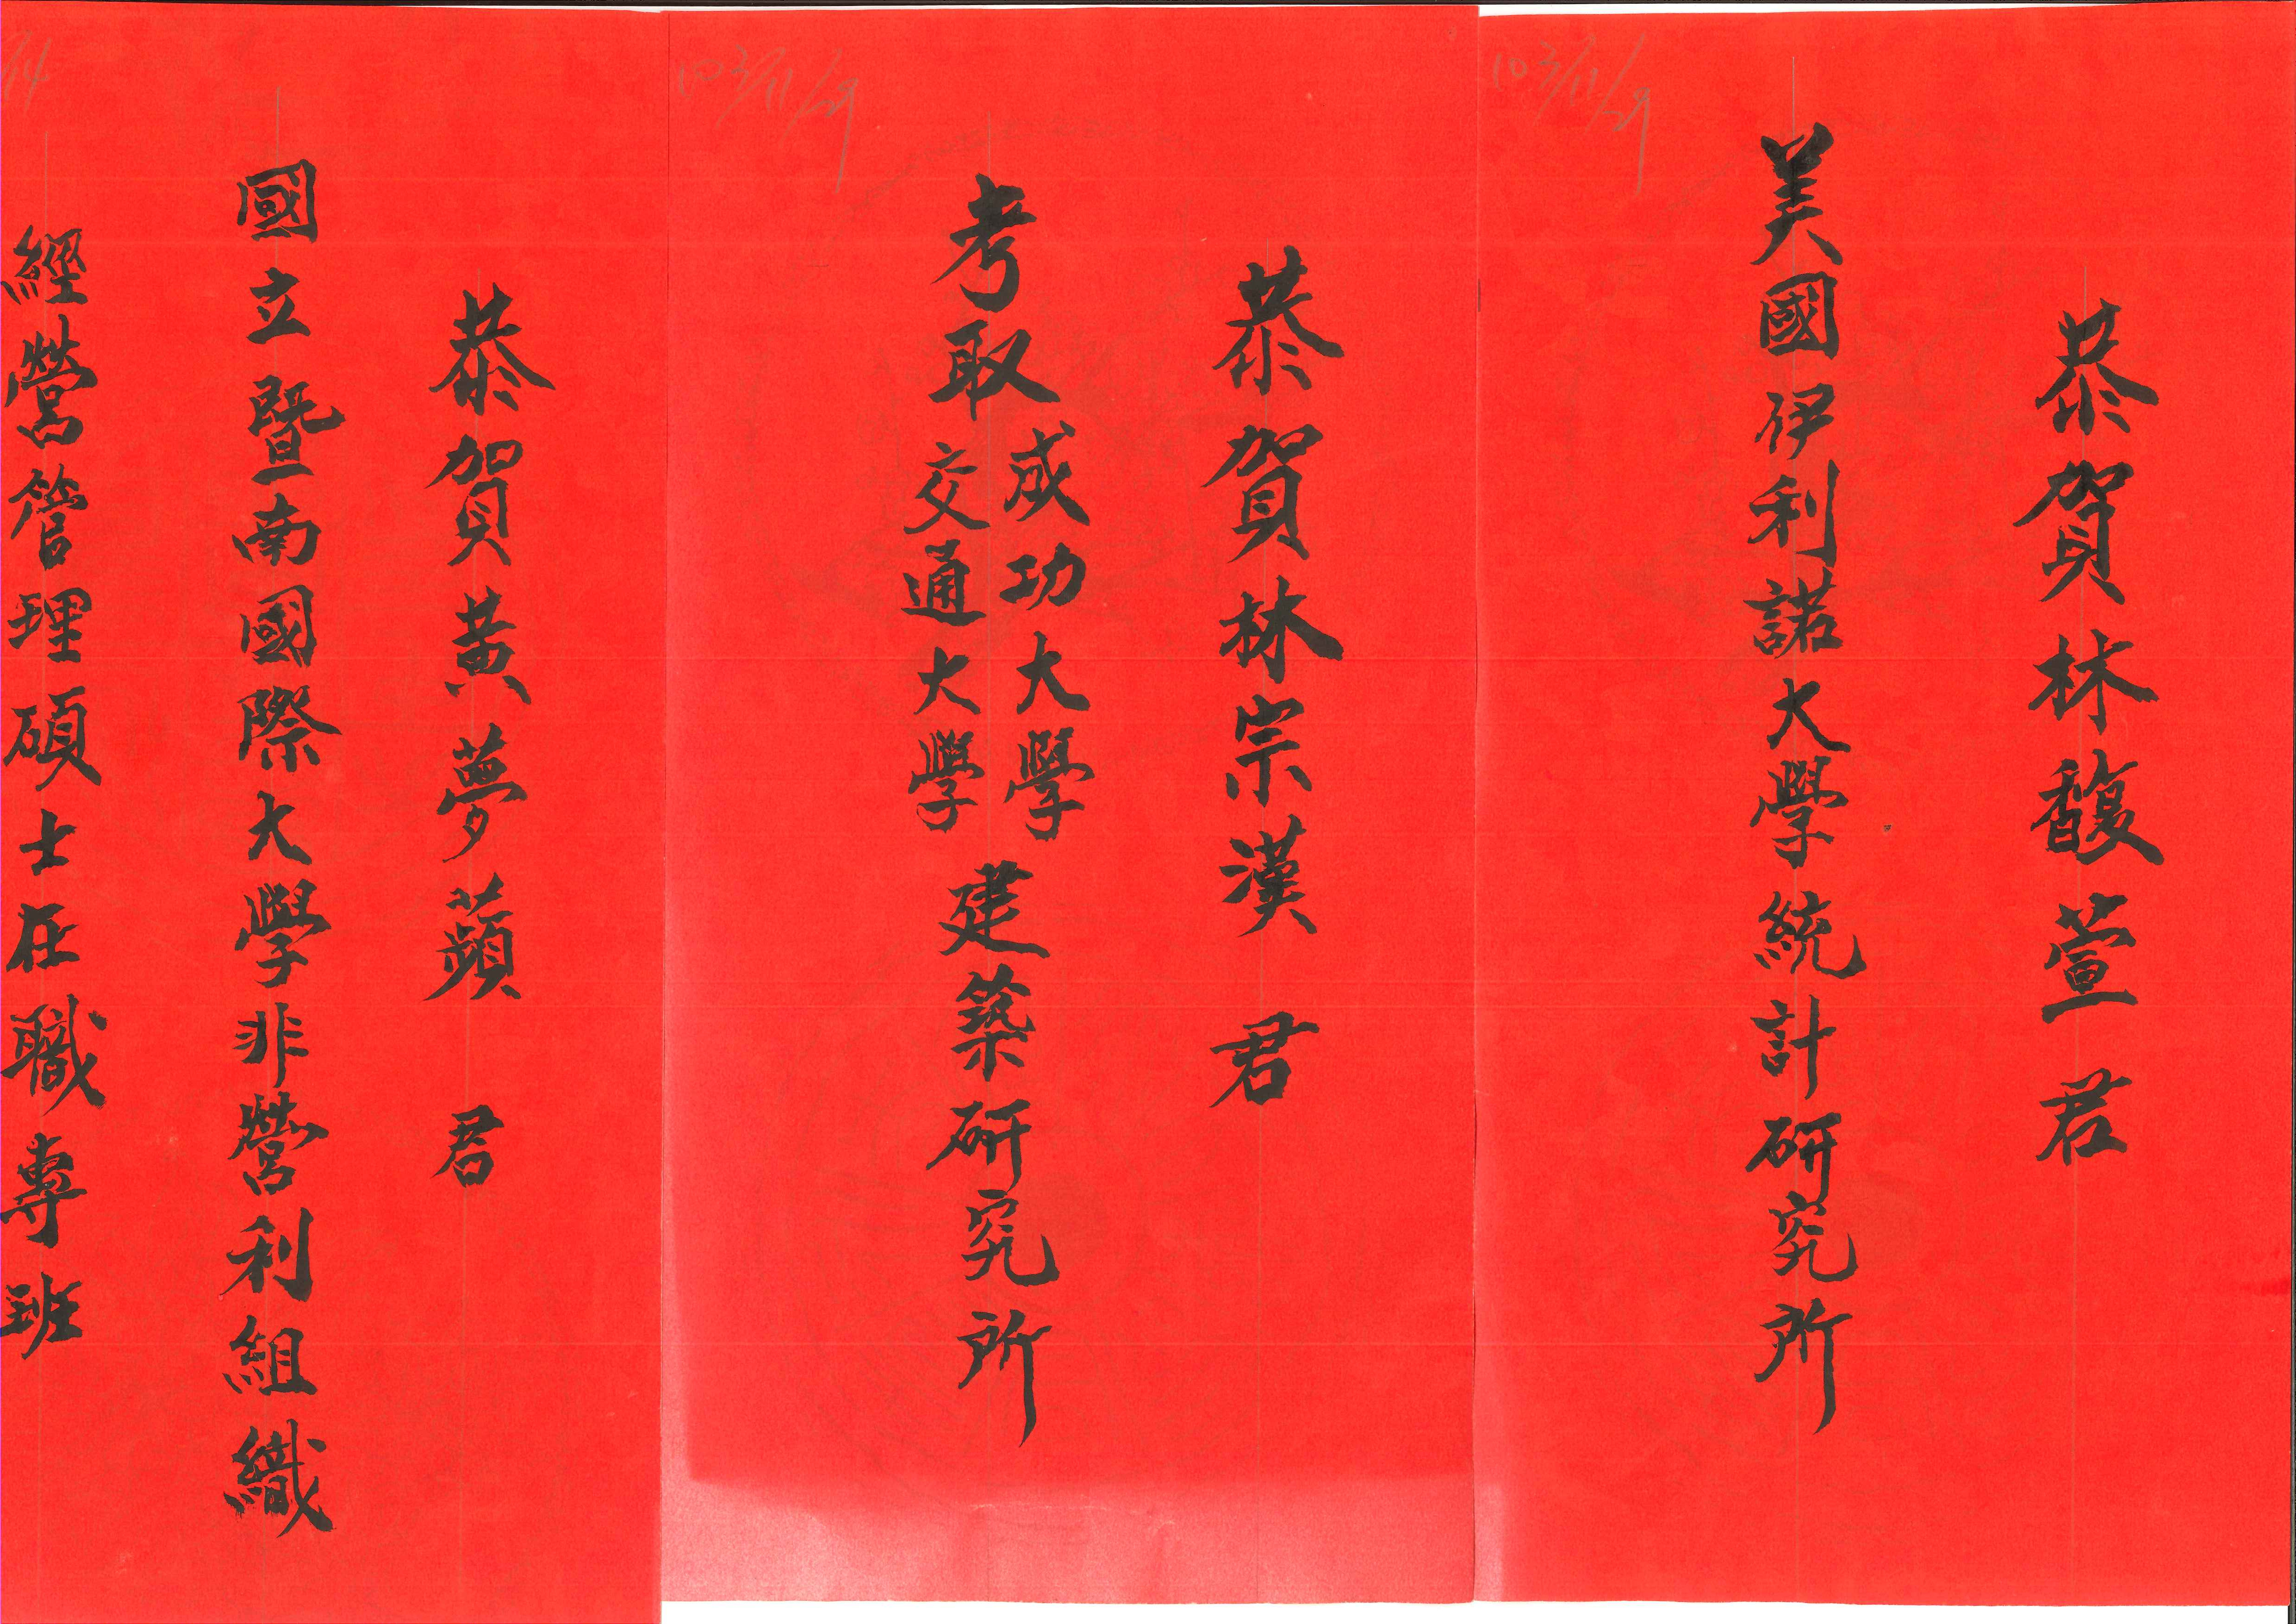 103/11/29
恭賀林馥萱君
美國伊利諾大學統計研究所
103/11/29
恭賀林宗漢 君
考取
成功大學
交通大學
建築研究所
恭賀黃夢蘋 君
國立暨南國際大學非營利組織
經營管理碩士在職專班